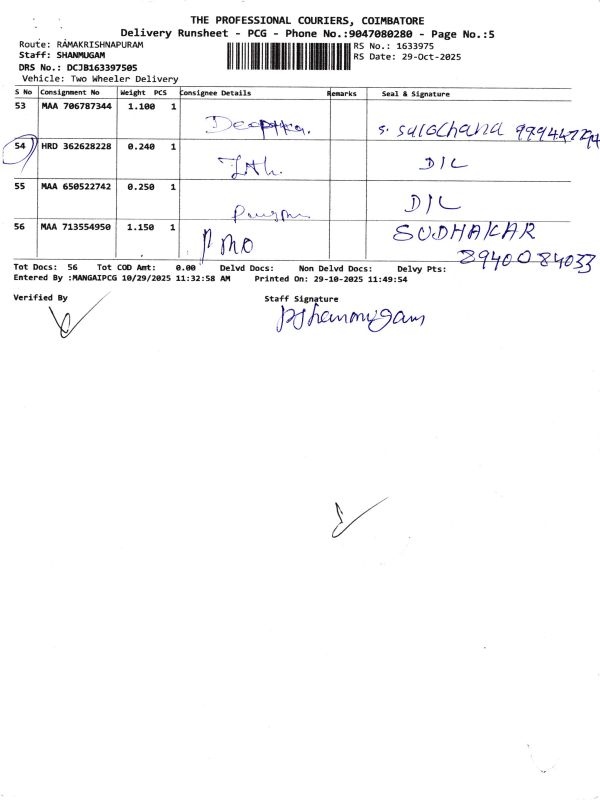 THE PROFESSIONAL COURIERS, COIMBATORE
Delivery Runsheet - PCG - Phone No.:9047080280 - Page No.:5
Route: RAMAKRISHNAPURAM RS No.: 1633975
Staff: SHANMUGAM RS Date: 29-Oct-2025
DRS No.: DCJB163397505
Vehicle: Two Wheeler Delivery
S No Consignment No Weight PCS Consignee Details Remarks Seal & Signature
53 MAA 706787344 1.100 1
Deepika. S. Sulochana
54 HRD 362628228 0.240 1
D/L
55 MAA 650522742 0.250 1
D/L
56 MAA 713554950 1.150 1 SUDHAKAR
8940084033
Tot Docs: 56 Tot COD Amt: 0.00 Delvd Docs: Non Delvd Docs: Delvy Pts:
Entered By :MANGAIPCG 10/29/2025 11:32:58 AM Printed On: 29-10-2025 11:49:54
Verified By Staff Signature
P Shanmugam